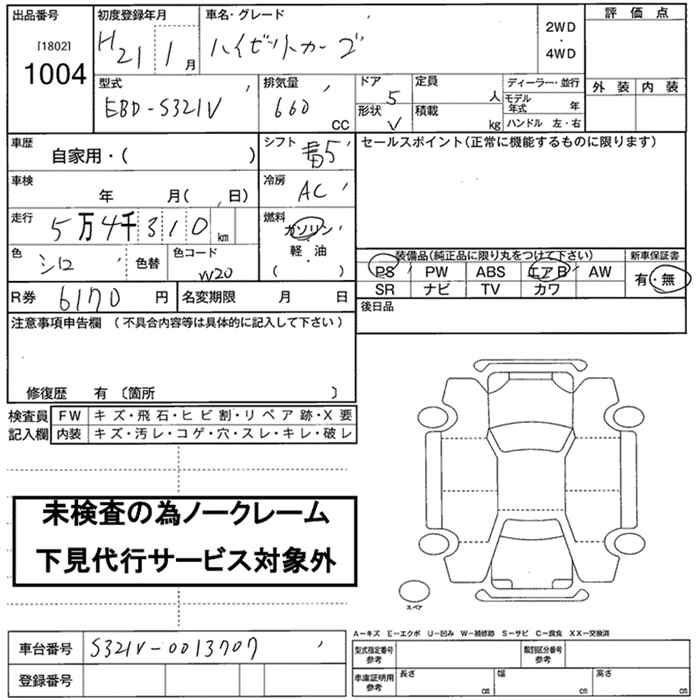 出品番号
[1802]
1004
初度登録年月
H21 1 月
車名・グレード
ハイゼットカーゴ
2WD
・
4WD
評価点
外装 内装
型式
EBD-S321V
排気量
660
CC
ドア 5
形状 V
定員 人
積載 kg
ディーラー・並行
モデル年式 年
ハンドル 左・右
車歴
自家用・( )
シフト
5
セールスポイント(正常に機能するものに限ります)
車検
年 月( 日)
冷房
AC
走行
5万4千310 km
燃料
ガソリン
・
軽油
( )
色
シロ
色替
色コード
W20
装備品(純正品に限り丸をつけて下さい)
PS PW ABS エアB AW
SR ナビ TV カワ
新車保証書
有・無
R券 6170 円
名変期限 月 日
後日品
注意事項申告欄 (不具合内容等は具体的に記入して下さい)
修復歴 有 〔箇所 〕
検査員
記入欄
FW キズ・飛石・ヒビ割・リペア跡・X要
内装 キズ・汚レ・コゲ・穴・スレ・キレ・破レ
未検査の為ノークレーム
下見代行サービス対象外
スペア
車台番号 S321V-0013707
登録番号
A-キズ E-エクボ U-凹み W-補修跡 S-サビ C-腐食 XX-交換済
型式指定番号
参考
類別区分番号
参考
車庫証明用
参考
長さ cm
幅 cm
高さ cm